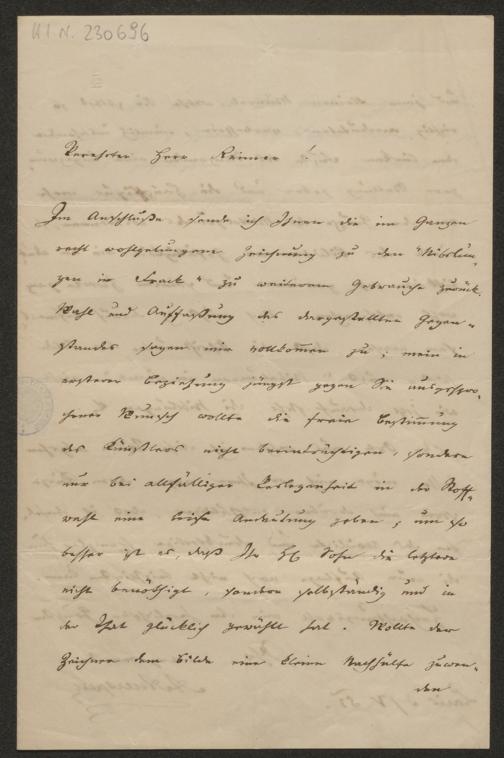 H I N. 230696
Verehrter Herr Reimer!
Im Anschluße sende ich Ihnen die im Ganzen
recht wohlgelungene Zeichnung zu den "Nibelun-
gen im Frack" zu weiterem Gebrauche zurück.
Wahl und Auffaßung des dargestellten Gegen-
standes sagen mir vollkommen zu; mein in
ersterer Beziehung jüngst gegen Sie ausgespro-
chener Wunsch wollte die freie Bestimmung
des Künstlers nicht beeinträchtigen, sondern
nur bei allfälliger Verlegenheit in der Stoff-
wahl eine leise Andeutung geben; um so
besser ist es, daß Ihr H Sohn die letztere
nicht benöthigt, sondern selbständig und in
der That glücklich gewählt hat. Wollte der
Zeichner dem Bilde eine kleine Nachhülfe zuwen-
den